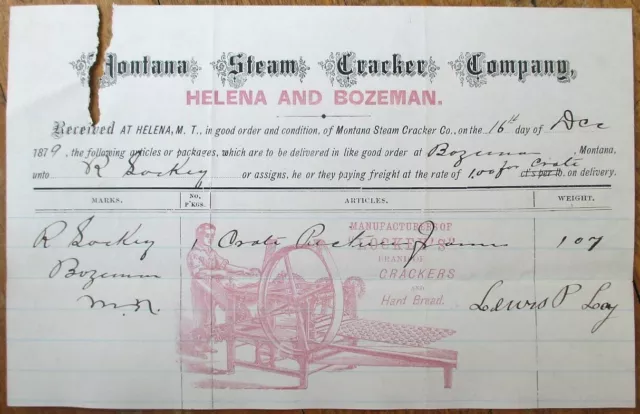 Montana Steam Cracker Company,
HELENA AND BOZEMAN.
Received AT HELENA, M. T., in good order and condition, of Montana Steam Cracker Co., on the 16th day of Dec
1879, the following articles or packages, which are to be delivered in like good order at Bozeman, Montana,
unto R Lockey or assigns, he or they paying freight at the rate of 100 for Crate ct's per lb. on delivery.
MARKS. NO. P'KGS. ARTICLES. WEIGHT.
MANUFACTURERS OF
R Lockey 1 Crate 107
"LOCKEY'S"
BRAND OF
Bozeman CRACKERS
AND
M.T. Hard Bread. Lewis P